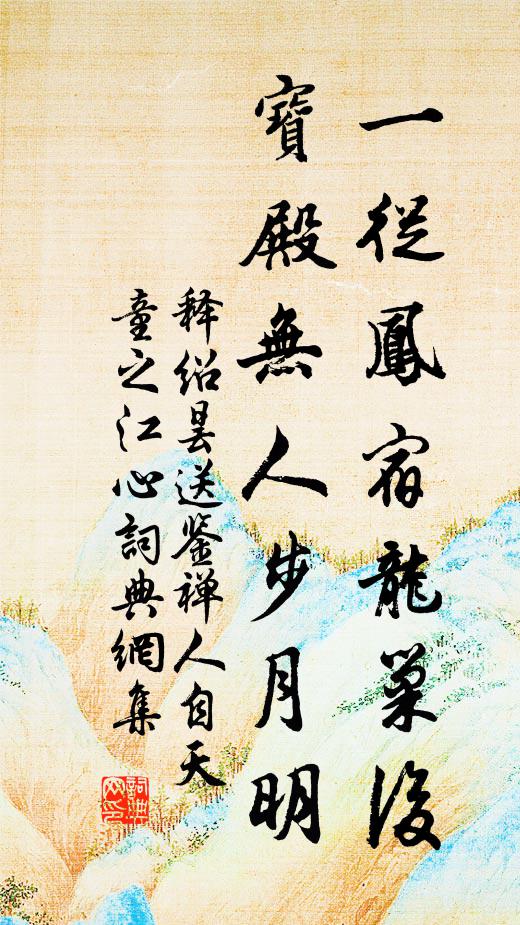 一從鳳宿龍巢後
寶殿無人步月明
釋紹昙送鉴禅人自天
童之江心詞典網集
詞典網印